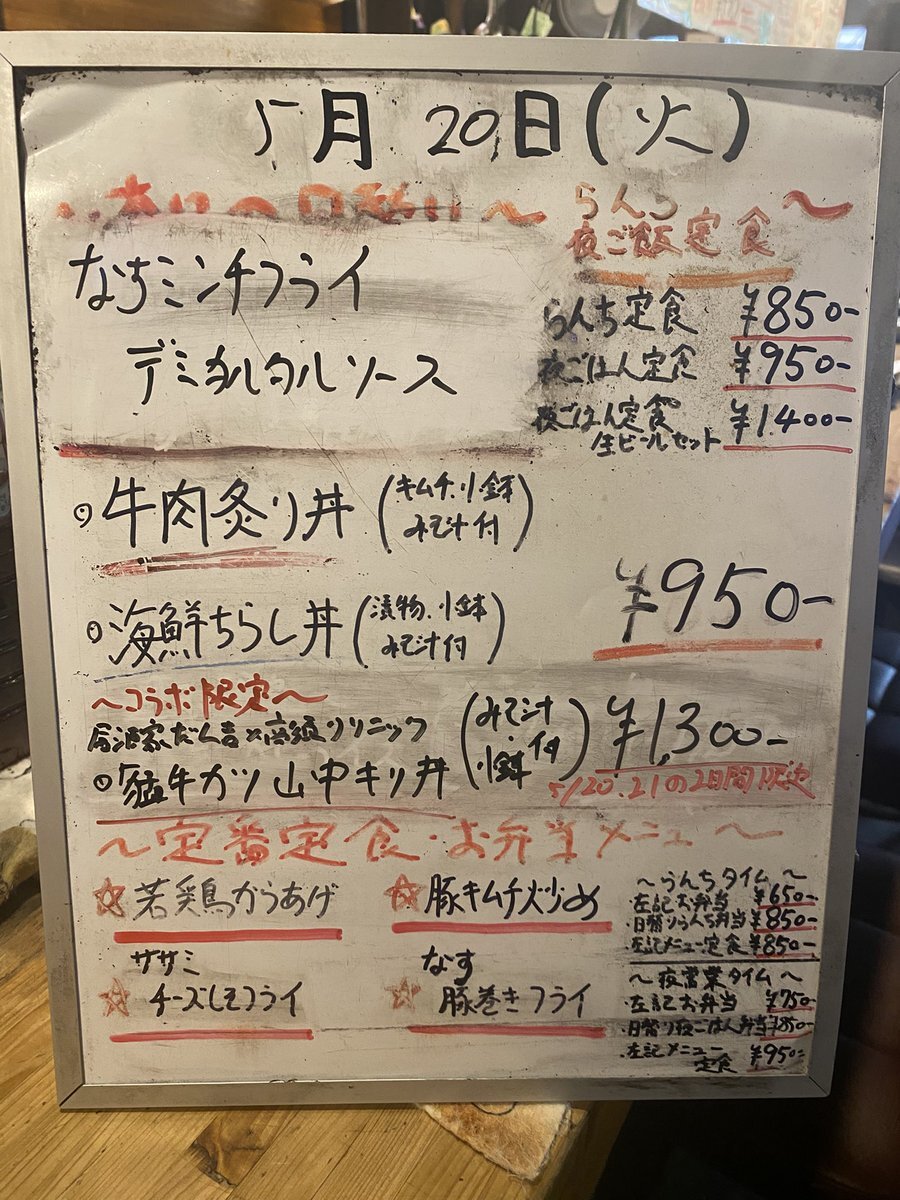 5月20日(火)
〜本日の日替り〜
らんち
夜ご飯定食〜
なすミンチフライ
デミタルタルソース
らんち定食 ¥850-
夜ごはん定食 ¥950-
夜ごはん定食
生ビールセット ¥1.400-
◎牛肉炙り丼(キムチ、小鉢
みそ汁付)
◎海鮮ちらし丼(漬物、小鉢
みそ汁付)
¥950-
〜コラボ限定〜
居酒家だん吉×
クリニック
◎猛牛カツ山中キリ丼
(みそ汁・
小鉢付)
¥1,300-
5/20.21の2日間限定
〜定番定食・お弁当メニュー〜
☆若鶏からあげ
☆豚キムチ炒め
ササミ
☆チーズしそフライ
なす
☆豚巻きフライ
〜らんちタイム〜
・左記お弁当 ¥650-
・日替りらんち弁当 ¥850-
・左記メニュー定食 ¥850-
〜夜営業タイム〜
・左記お弁当 ¥750-
・日替り夜ごはん弁当 ¥850-
・左記メニュー
定食 ¥950-